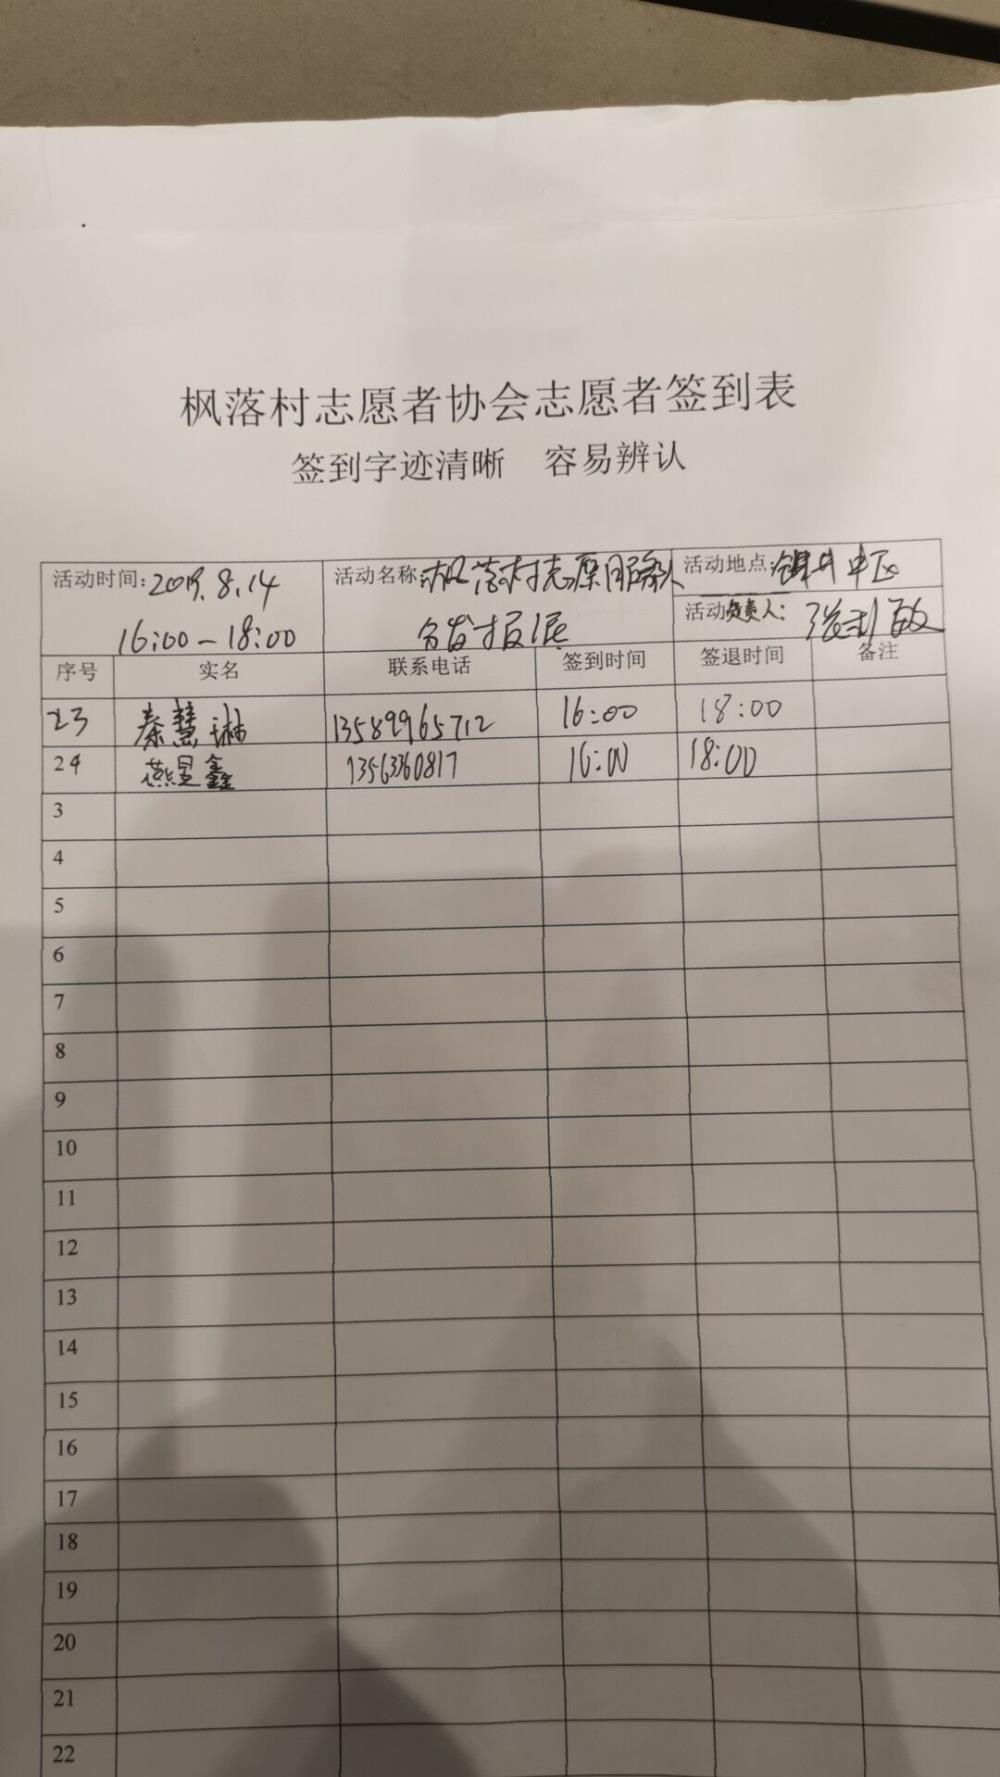 枫落村志愿者协会志愿者签到表
签到字迹清晰 容易辨认
活动时间: 2019.8.14
16:00-18:00
活动名称: 枫落村志愿服务队
分发报纸
活动地点: 中区
活动负责人: 张利敏
序号 实名 联系电话 签到时间 签退时间 备注
23 秦慧琳 13589965712 16:00 18:00
24 燕昱鑫 13563360817 16:00 18:00
3
4
5
6
7
8
9
10
11
12
13
14
15
16
17
18
19
20
21
22